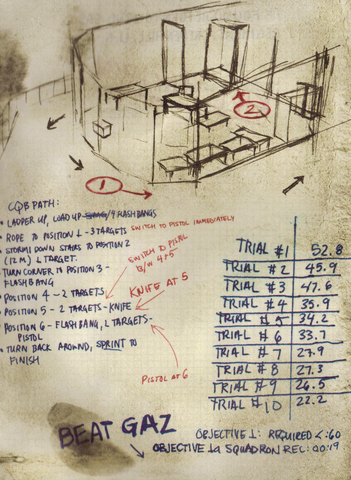 1
2
CQB PATH:
• LADDER UP, LOAD UP 4 FLASHBANGS
• ROPE TO POSITION 1 - 3 TARGETS SWITCH TO PISTOL IMMEDIATELY
• STORM DOWN STAIRS TO POSITION 2
(12 M) 1 TARGET.
TURN CORNER TO POSITION 3 -
FLASHBANG
SWITCH TO PISTOL
B/W 4+5
POSITION 4 - 2 TARGETS
KNIFE AT 5
POSITION 5 - 2 TARGETS - KNIFE
POSITION 6 - FLASHBANG, 2 TARGETS -
PISTOL
• TURN BACK AROUND, SPRINT TO
FINISH
PISTOL AT 6
TRIAL #1 52.8
TRIAL #2 45.9
TRIAL #3 47.6
TRIAL #4 35.9
TRIAL #5 34.2
TRIAL #6 33.7
TRIAL #7 27.9
TRIAL #8 27.3
TRIAL #9 26.5
TRIAL #10 22.2
BEAT GAZ
OBJECTIVE 1: REQUIRED <:60
OBJECTIVE 1a SQUADRON REC: 00:19